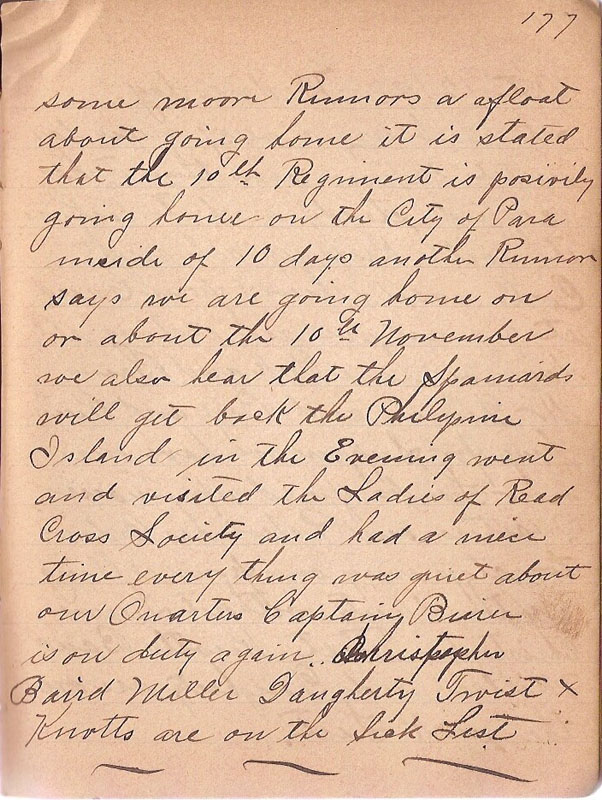 177
some moore Rumors a afloat
about going home it is stated
that the 10th Regiment is posivily
going home on the City of Para
inside of 10 days another Rumor
says we are going home on
or about the 10th November
we also hear that the Spaniards
will get back the Philypine
Island in the Evening went
and visited the Ladies of Read
Cross Society and had a nice
time every thing was quiet about
our Quarters Captain Bierer
is on duty again .. Christopher
Baird Miller Daugherty Twist X
Knotts are on the Sick List